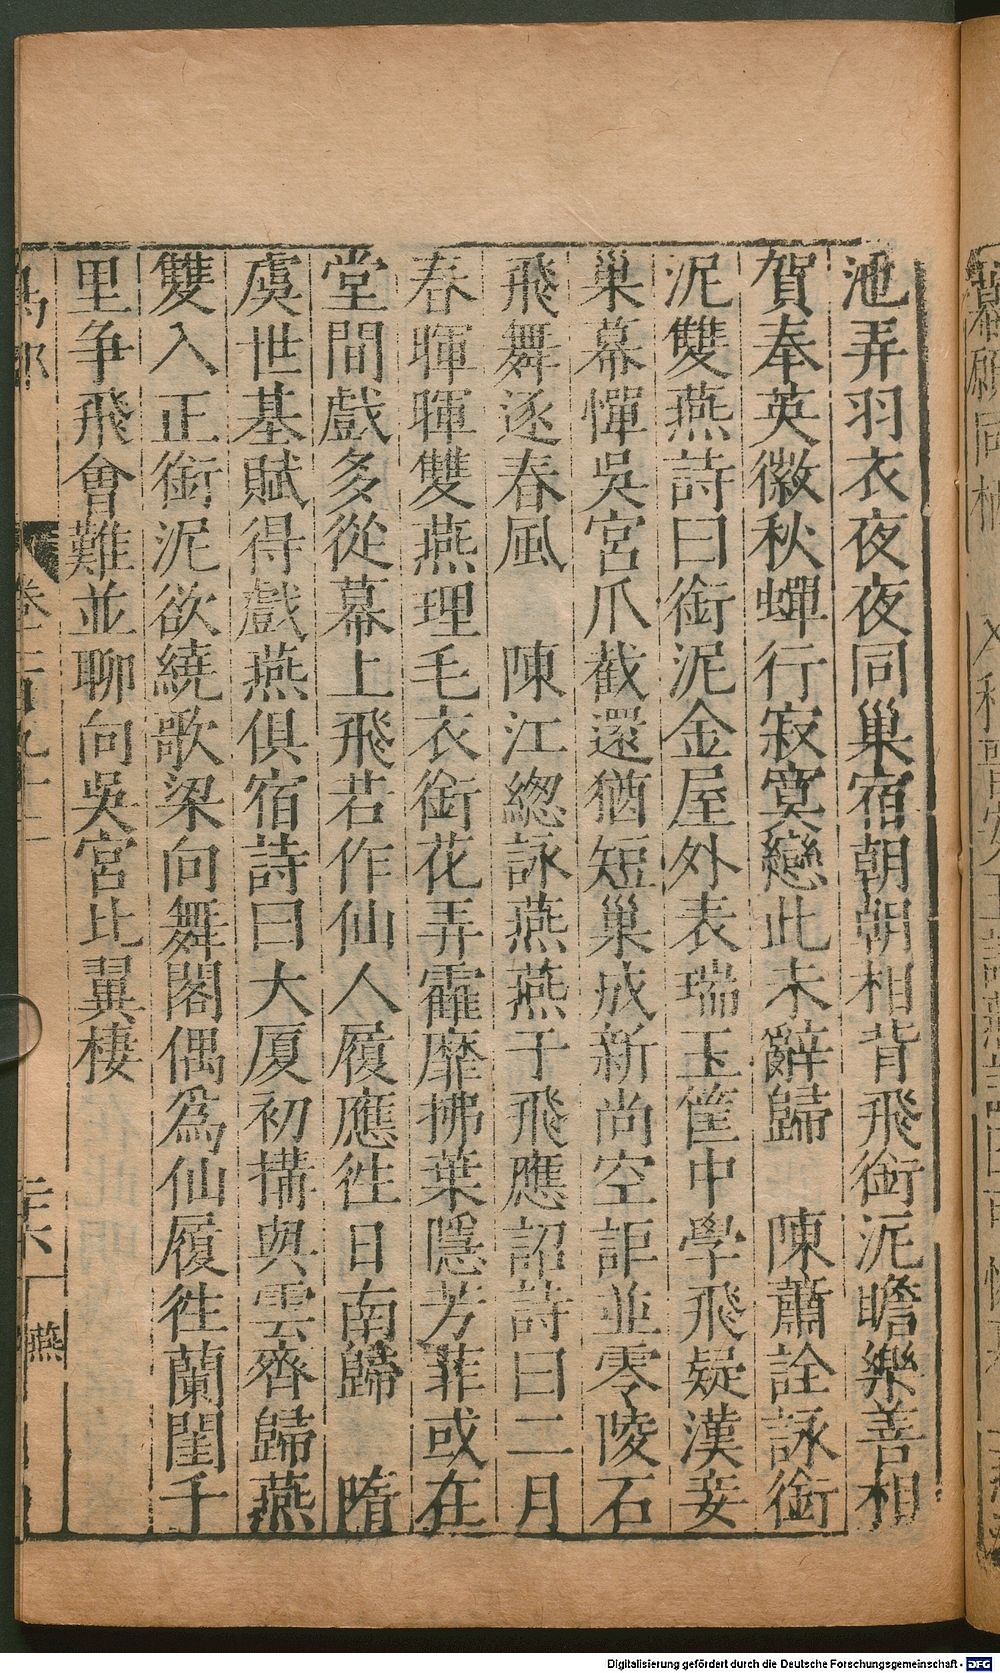 池弄羽衣夜夜同巢宿朝朝相背飛銜泥瞻樂善相
賀奉英徽秋蟬行寂寞戀此未辭歸　陳蕭詮詠銜
泥雙燕詩曰銜泥金屋外表瑞玉筐中學飛疑漢妾
巢幕憚吳宮爪截還猶短巢成新尚空詎並零陵石
飛舞逐春風　陳江緫詠燕燕于飛應詔詩曰二月
春暉暉雙燕理毛衣銜花弄霍靡拂葉隱芳菲或在
堂間戲多從幕上飛若作仙人履應徃日南歸　隋
虞世基賦得戲燕俱宿詩曰大厦初搆與雲齊歸燕
雙入正銜泥欲繞歌梁向舞閣偶爲仙履徃蘭閨千
里争飛會難並聊向吳宮比翼棲
卷二百九十二
二六
燕
Digitalisierung gefördert durch die Deutsche Forschungsgemeinschaft - DFG